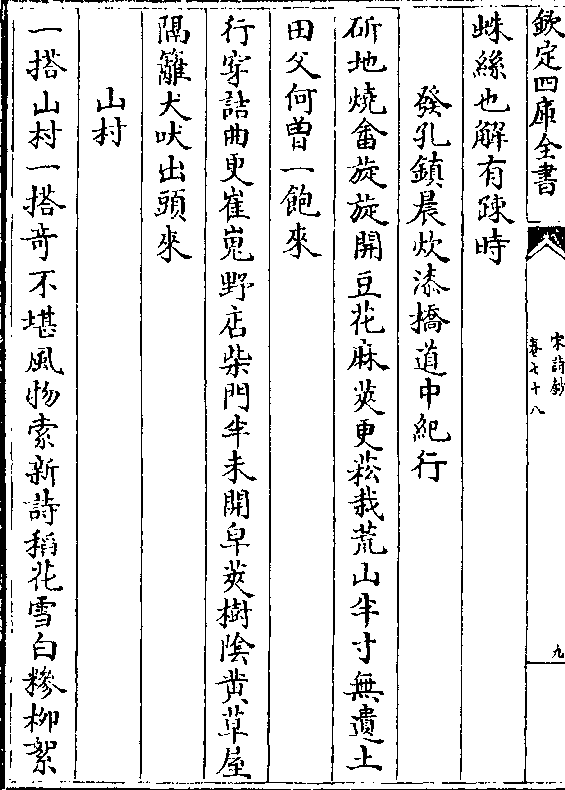 欽定四庫全書
宋詩鈔
卷七十八
九
蛛絲也解有疎時
發孔鎮晨炊漆橋道中紀行
斫地燒畬旋旋開豆花麻莢更菘栽荒山半寸無遺土
田父何曾一飽來
行穿詰曲更崔嵬野店柴門半未開皁莢樹陰黄草屋
隔籬犬吠出頭來
山村
一搭山村一搭竒不堪風物索新詩稻花雪白糝柳絮